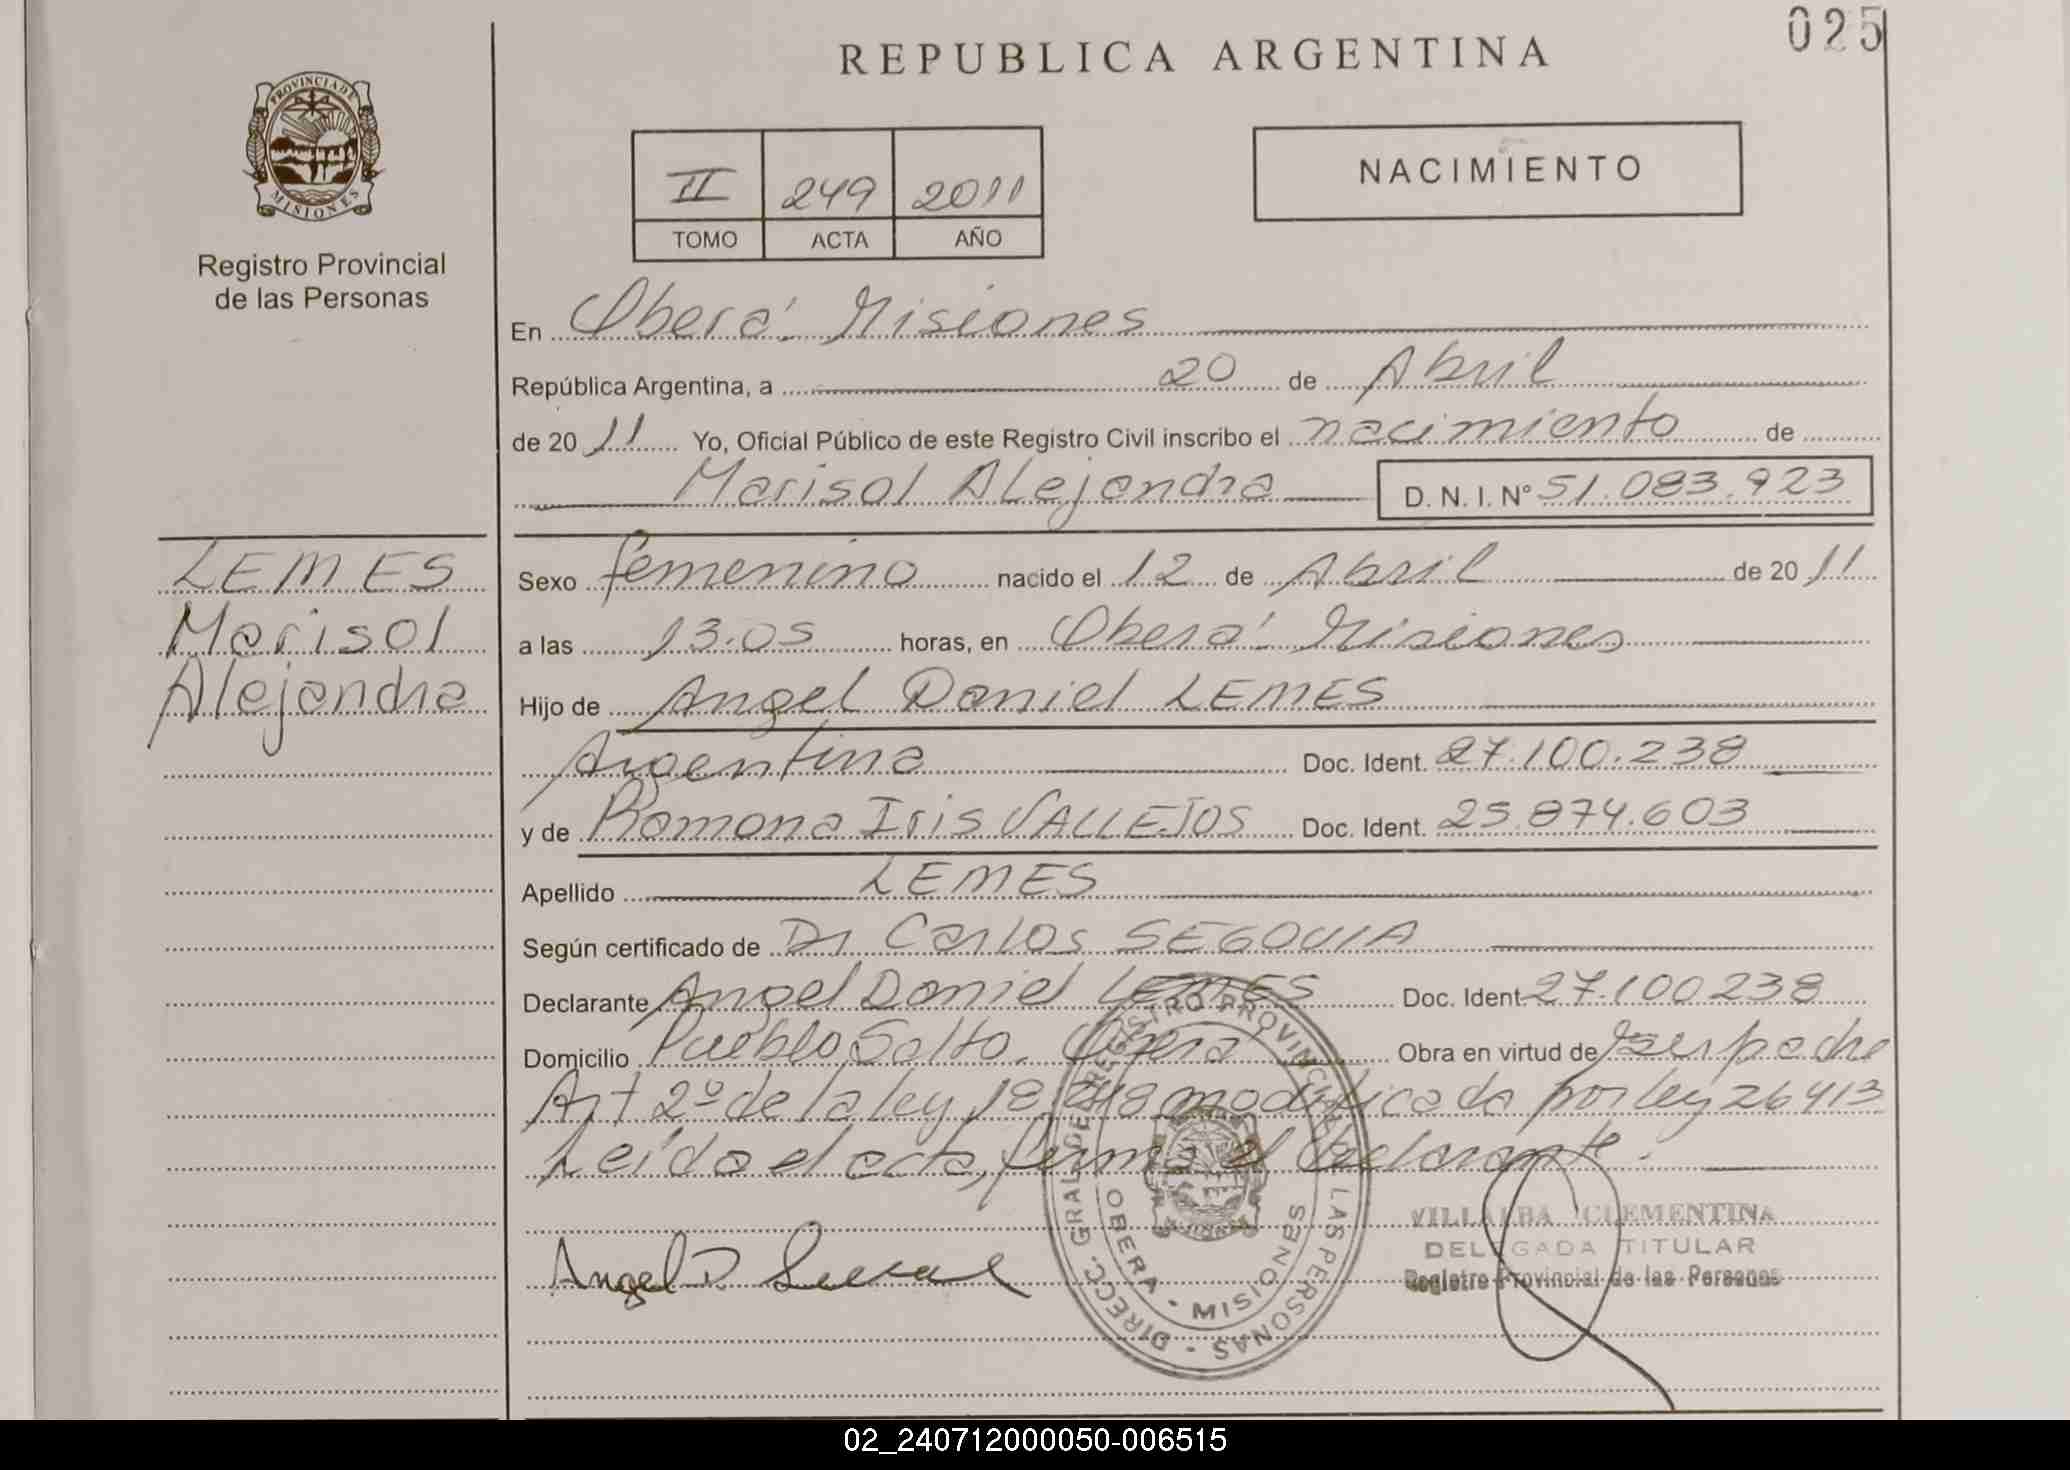 025
REPUBLICA ARGENTINA
PROVINCIA DE
MISIONES
Registro Provincial
de las Personas
II 249 2011
TOMO ACTA AÑO
NACIMIENTO
En Oberá Misiones
República Argentina, a 20 de Abril
de 20 11 Yo, Oficial Público de este Registro Civil inscribo el nacimiento de
Marisol Alejandra D. N. I. N° 51.083.923
LEMES
Marisol
Alejandra
Sexo femenino nacido el 12 de Abril de 20 11
a las 13.05 horas, en Oberá Misiones
Hijo de Angel Daniel LEMES
Argentina Doc. Ident. 27.100.238
y de Ramona Iris VALLEJOS Doc. Ident. 25.874.603
Apellido LEMES
Según certificado de Dr Carlos SEGOVIA
Declarante Angel Daniel LEMES Doc. Ident 27.100238
Domicilio Pueblo Salto. Oberá Obra en virtud de ser padre
Art 2º de la ley 18.248 modificada por ley 26413
Leída el acta, firma el declarante.
Angel D. Lemes
DIRECC. GRAL. DE REGISTRO PROVINCIAL LAS PERSONAS
OBERA - MISIONES
VILLALBA CLEMENTINA
DELEGADA TITULAR
Registro Provincial de las Personas
02_240712000050-006515